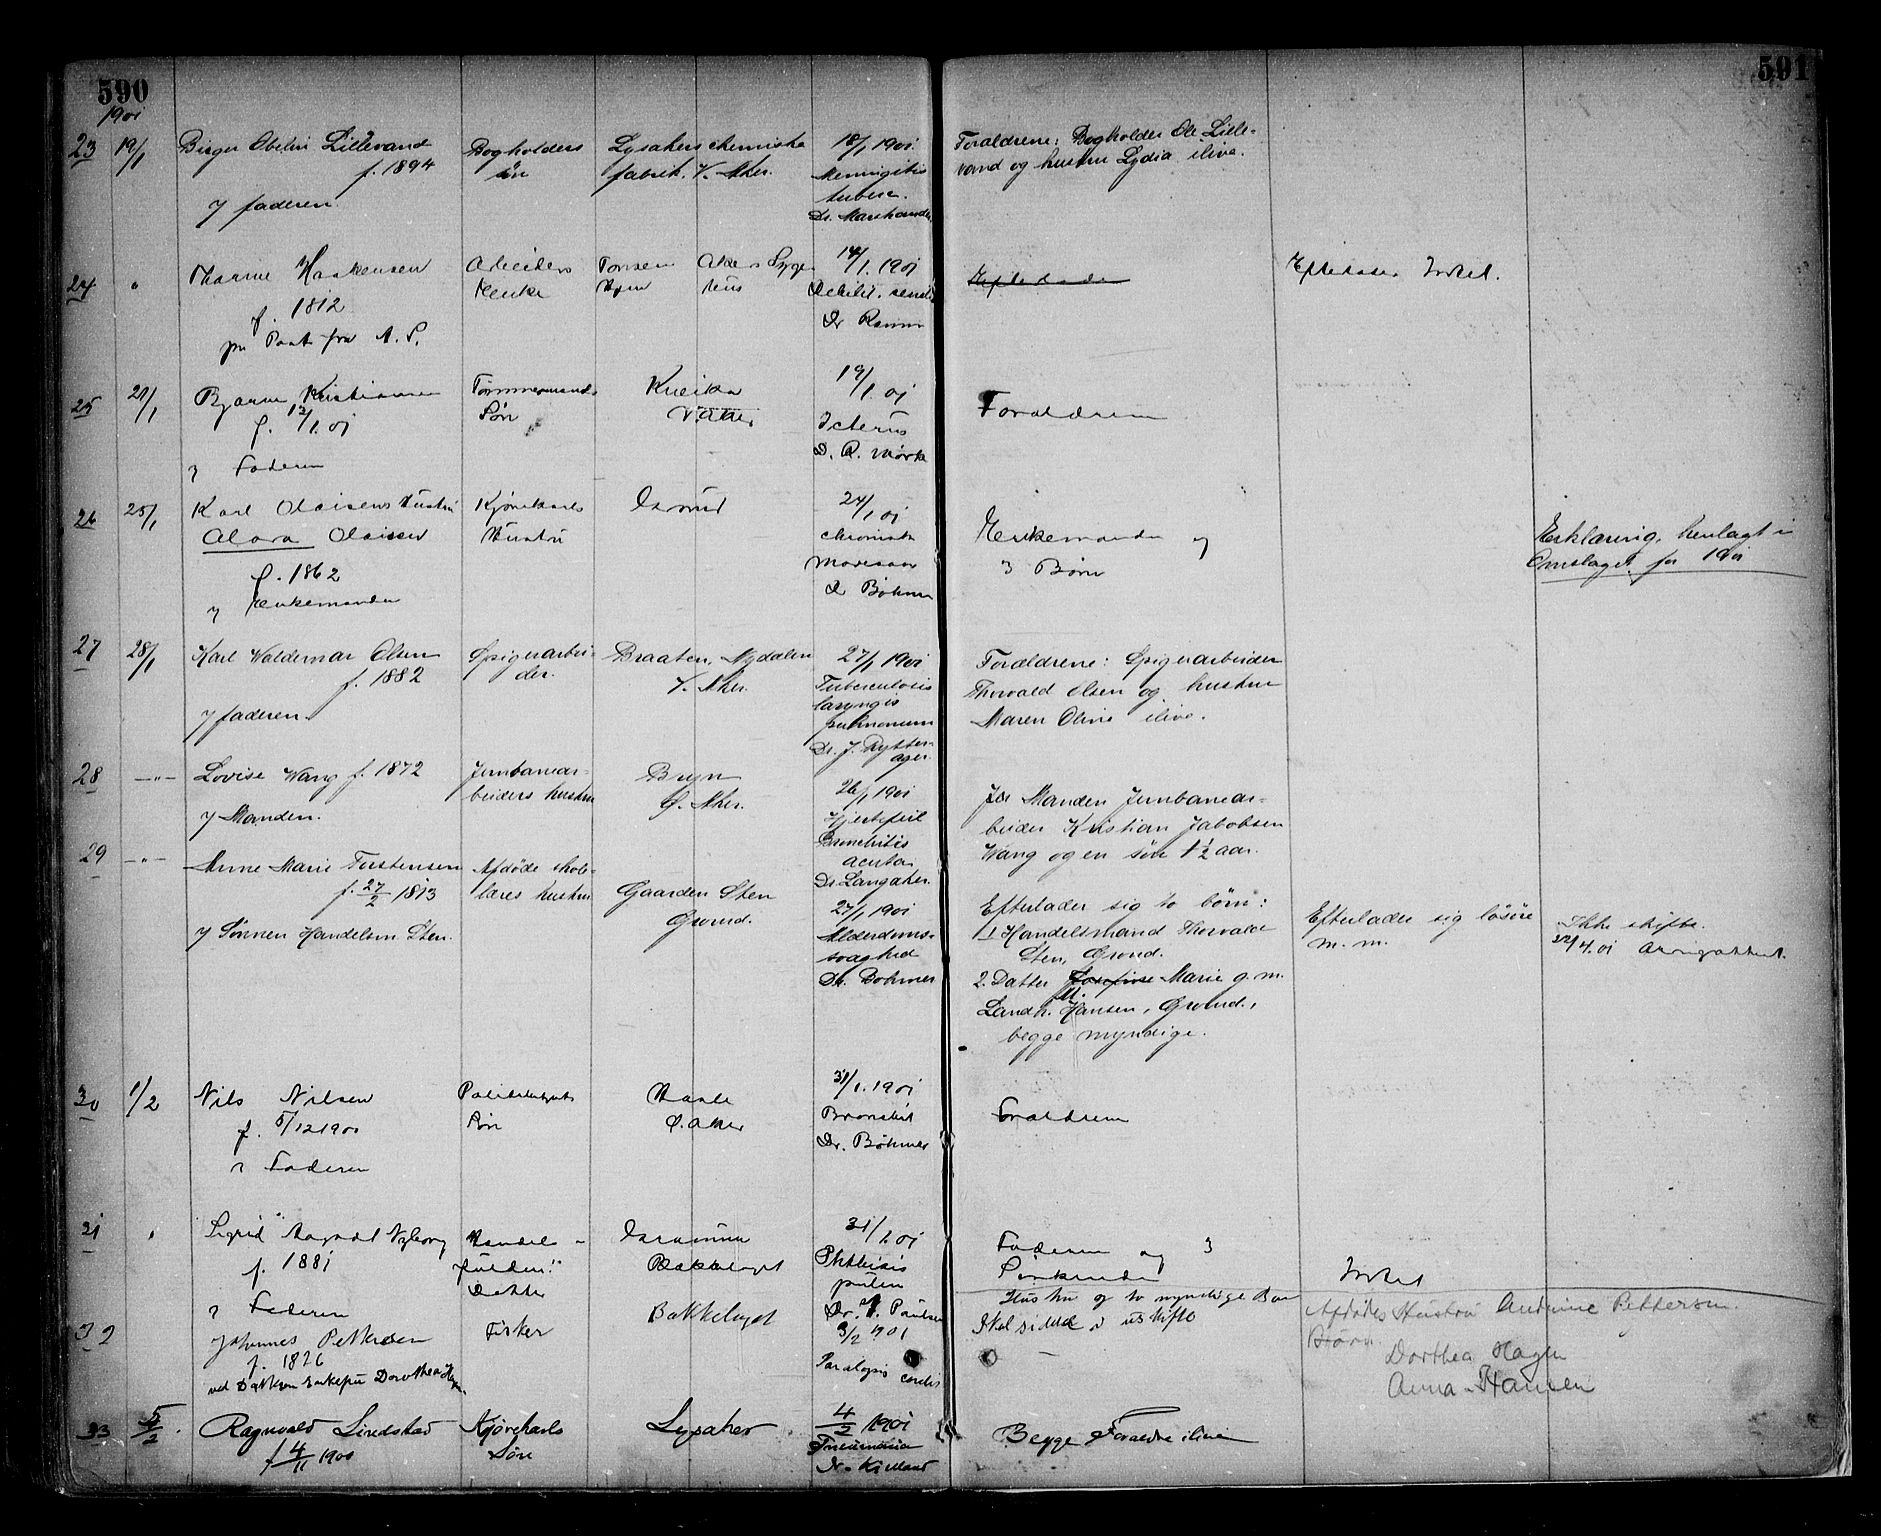 590
591
1901
23
19/1
Birger Obelin Lillevand
f. 1894
v/ faderen.
Bogholders
søn
Lysakers chemiske
fabrik, V. Aker.
18/1 1901
Meningitis
tuberc.
Forældrene: Bogholder Ole Lille-
vand og hustru Lydia ilive.
24
"
Haakensen
f. 1812
pr Post fra A. S.
Arbeiders
Enke
Tonsen
Hjem
Akers Syge
hus
14/1. 1901
Debilit. senil
Dr
Efterlader Intet.
25
21/1
Bjarne Kristiansen
f. 12/1. 01
v/ Faderen
Tømmermands
Søn
V. Aker
19/1. 01
Icterus
D. R. Mørk
Forældrene
26
25/1
Karl Olaisens Hustru
Olaisen
f. 1862
v/ Enkemanden
Kjørekarls
Hustru
24/1 01
chronisk
Dr Bøhmer
Enkemanden og
3 Børn
Erklæring, henlagt i
Omslaget for 1901
27
28/1
Karl Waldemar Olsen
f. 1882
v/ faderen.
Spigerarbei-
der.
Braaten, Nydalen
V. Aker.
27/1 1901
Tuberculosis
laryngis
pulmonum
Dr. J. Rytter-
ager
Forældrene: Spigerarbeider
Thorvald Olsen og hustru
Maren Oline ilive.
28
—"—
Lovise Wang f. 1872
v/ Manden.
Jernbanear-
beiders hustru
Bryn
Ø. Aker.
26/1 1901
Hjertefeil
Bronchitis
acuta
Dr. Langaker.
Manden Jernbanear-
beider Kristian Jakobsen
Wang og en søn 1 1/2 aar.
29
—"—
Anne Marie Torstensen
f. 27/2 1813
v/ Sønnen Handelsm. Sten.
Afdøde skole-
lærers hustru
Gaarden Sten
Grorud.
27/1 1901
Alderdoms-
svaghed
Dr. Bohmer
Efterlader sig to børn:
1 Handelsmand Thorvald
Sten, Grorud.
2. Datter Josefine Marie g. m.
Landh. Hansen, Grorud,
begge myndige.
Efterlader sig løsøre
m. m.
Ikke skifte.
30
1/2
Nils Nilsen
f. 5/12 1900
v/ Faderen
Søn
Ø. Aker
31/1. 1901
Bronchit
Dr. Bøhmer
Forældrene
31
"
Sigrid Nyborg
f. 1881
v/ Faderen
Datter
Bækkelaget
31/1. 01
Phthisis
pulm
Dr. Paulsen
Faderen og 3
Søskende
Intet
32
Johannes Pettersen
f. 1826
ved Datteren Enkefru Dorothea Hagen.
Fisker
Bækkelaget
3/2 1901
Paralysis cordis
Hustru og to myndige Børn
Skal sidde i uskifte
Afdødes Hustru Andrine Pettersen.
Børn
Dorthea Hagen
Anna Hansen
33
5/2
Ragnvald Lindstad
f 4/11 1900
Kjørekarls
Søn
Lysaker
4/2 1901
Pneumonia
Dr. Kielland
Begge Forældre ilive